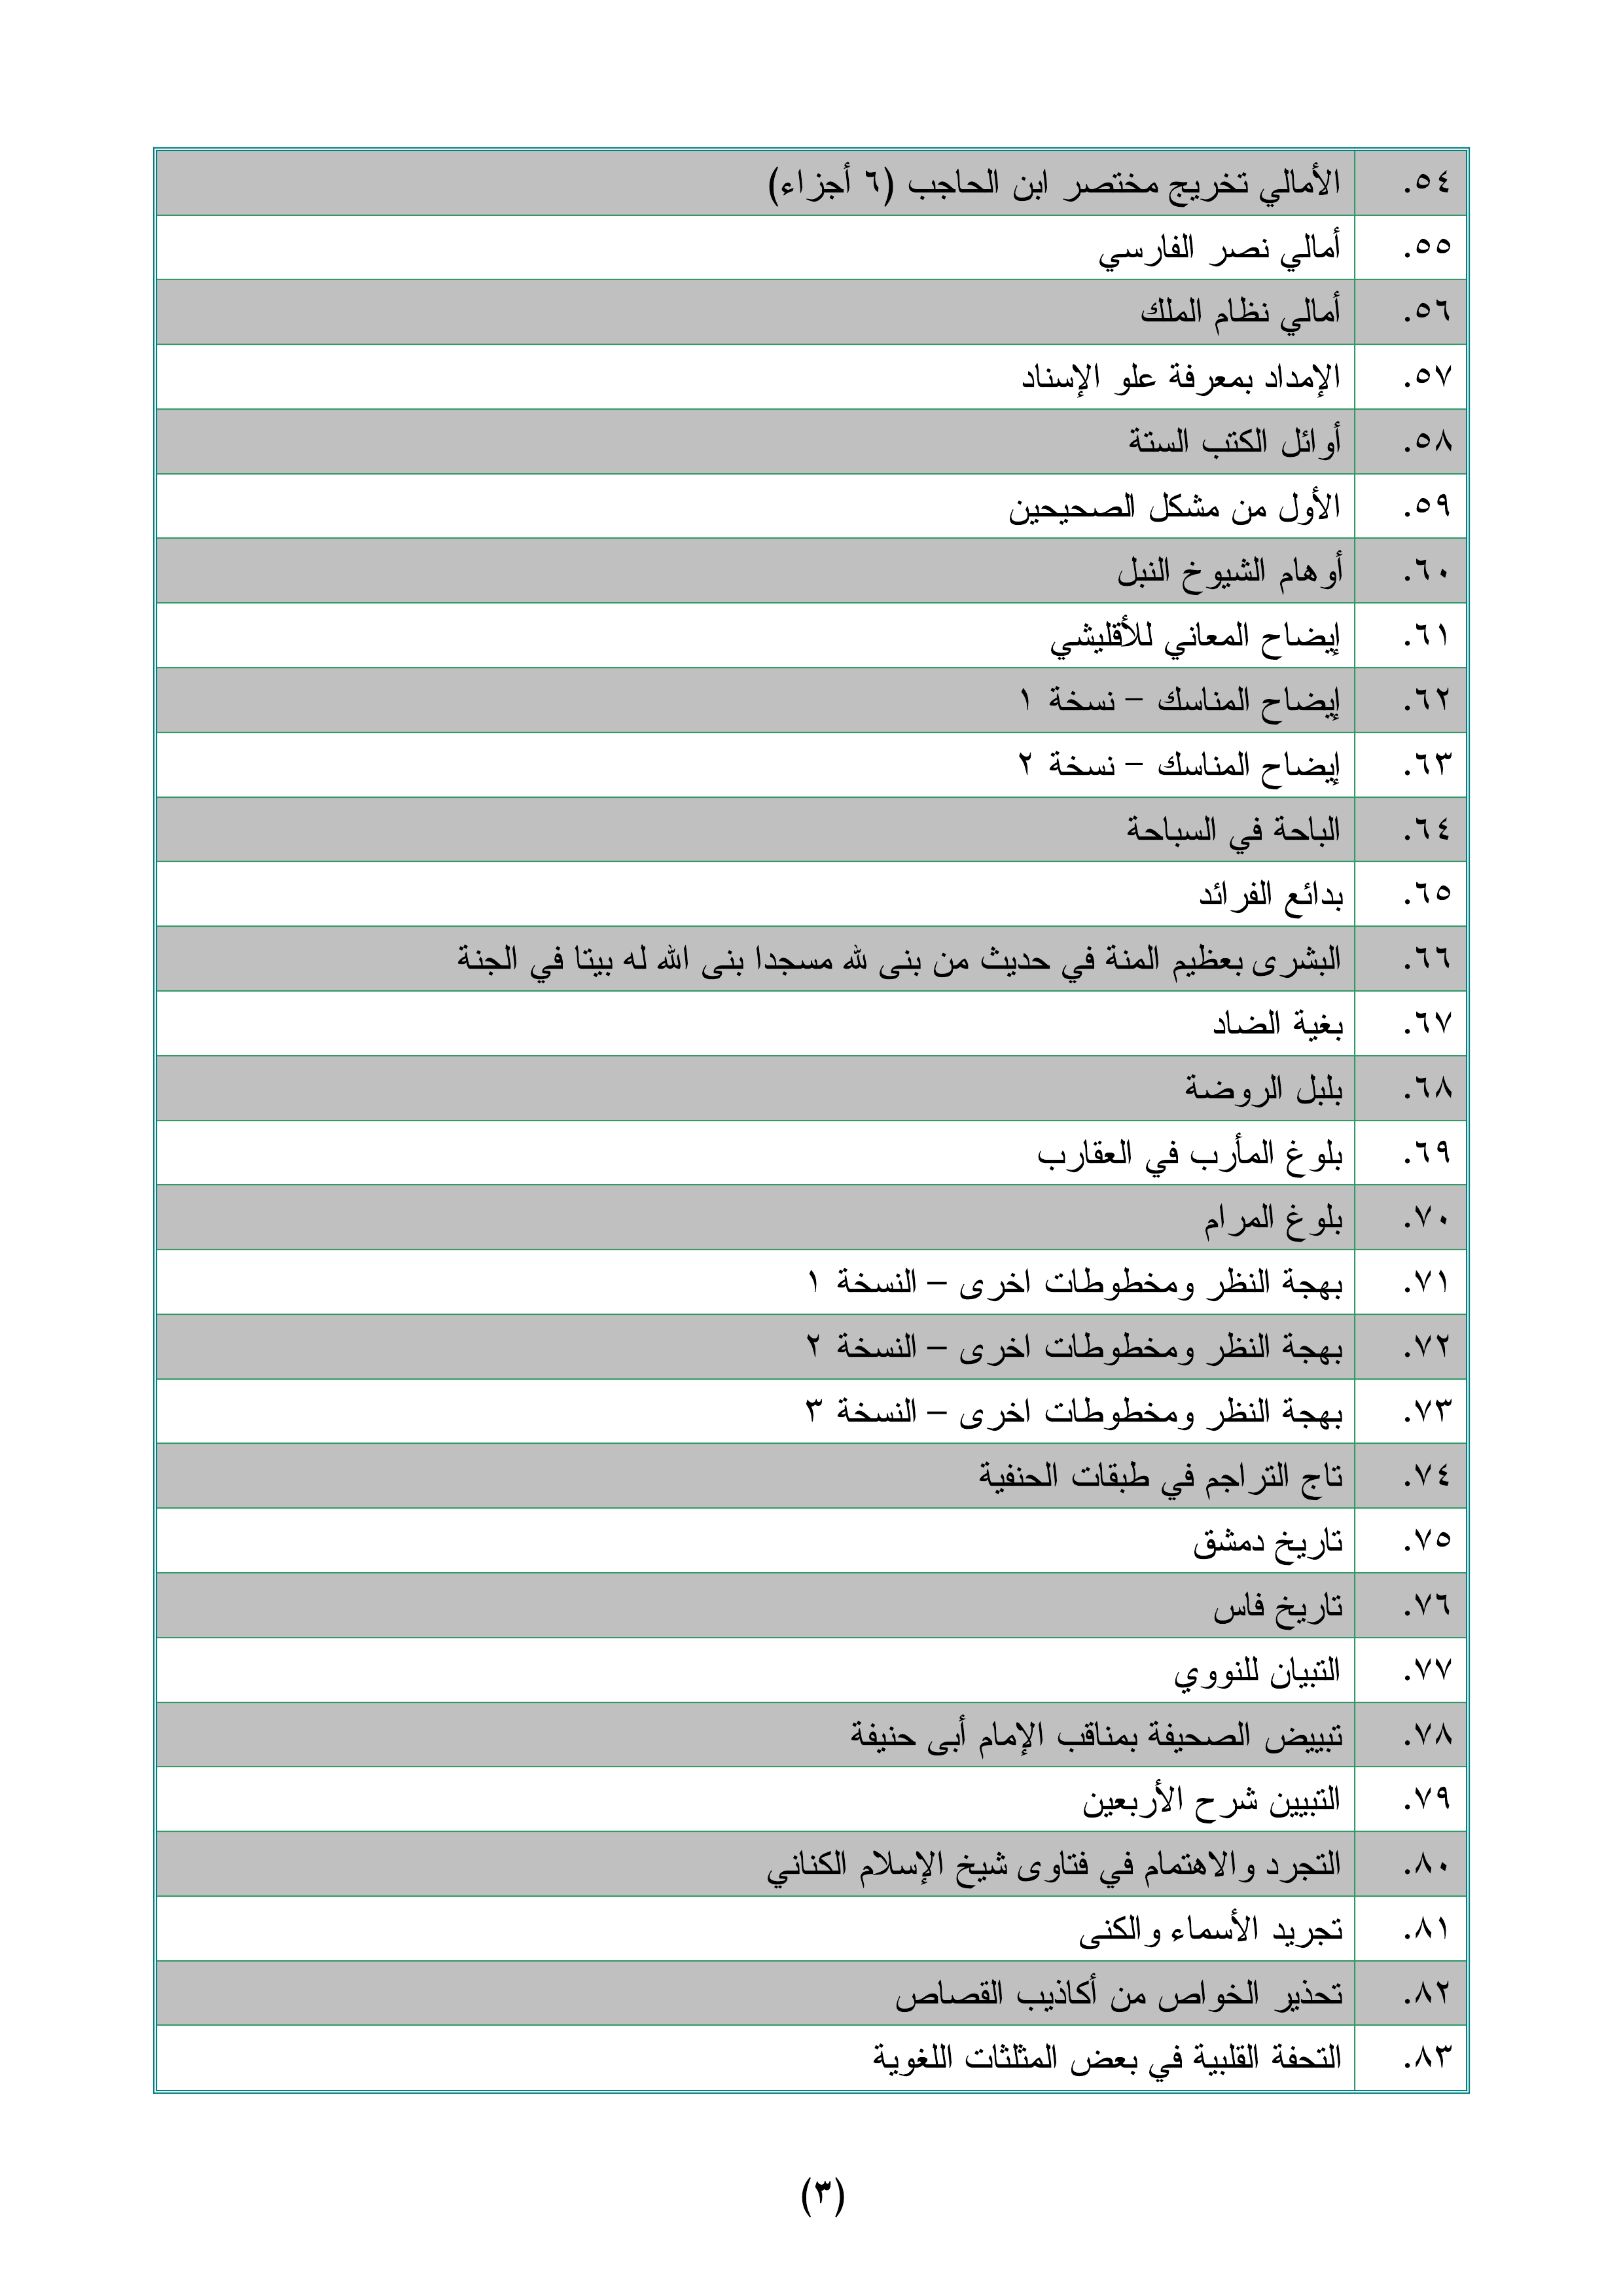 ٥٤. الأمالي تخريج مختصر ابن الحاجب (٦ أجزاء)
٥٥. أمالي نصر الفارسي
٥٦. أمالي نظام الملك
٥٧. الإمداد بمعرفة علو الإسناد
٥٨. أوائل الكتب الستة
٥٩. الأول من مشكل الصحيحين
٦٠. أوهام الشيوخ النبل
٦١. إيضاح المعاني للأقليشي
٦٢. إيضاح المناسك – نسخة ١
٦٣. إيضاح المناسك – نسخة ٢
٦٤. الباحة في السباحة
٦٥. بدائع الفرائد
٦٦. البشرى بعظيم المنة في حديث من بنى لله مسجدا بنى الله له بيتا في الجنة
٦٧. بغية الضاد
٦٨. بلبل الروضة
٦٩. بلوغ المأرب في العقارب
٧٠. بلوغ المرام
٧١. بهجة النظر ومخطوطات اخرى – النسخة ١
٧٢. بهجة النظر ومخطوطات اخرى – النسخة ٢
٧٣. بهجة النظر ومخطوطات اخرى – النسخة ٣
٧٤. تاج التراجم في طبقات الحنفية
٧٥. تاريخ دمشق
٧٦. تاريخ فاس
٧٧. التبيان للنووي
٧٨. تبييض الصحيفة بمناقب الإمام أبى حنيفة
٧٩. التبيين شرح الأربعين
٨٠. التجرد والاهتمام في فتاوى شيخ الإسلام الكناني
٨١. تجريد الأسماء والكنى
٨٢. تحذير الخواص من أكاذيب القصاص
٨٣. التحفة القلبية في بعض المثلثات اللغوية
(٣)